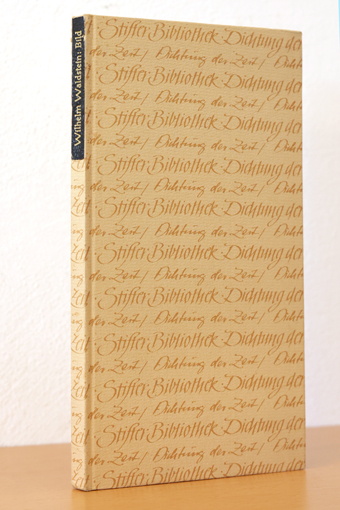 Wilhelm Waldstein: Bild
Stifter-Bibliothek · Dichtung der
der Zeit / Dichtung der Zeit /
Stifter-Bibliothek · Dichtung der
der Zeit / Dichtung der Zeit / Dicht
Stifter-Bibliothek · Dichtung der
der Zeit / Dichtung der Zeit / Dicht
Stifter-Bibliothek · Dichtung der
der Zeit / Dichtung der Zeit / Dicht
Stifter-Bibliothek · Dichtung der
der Zeit / Dichtung der Zeit / Dicht
Stifter-Bibliothek · Dichtung der
der Zeit / Dichtung der Zeit / Dicht
Stifter-Bibliothek · Dichtung der
der Zeit / Dichtung der Zeit / Dicht
Stifter-Bibliothek · Dichtung der
der Zeit / Dichtung der Zeit / Dicht
Stifter-Bibliothek · Dichtung der
der Zeit / Dichtung der Zeit / Dicht
Zeit · Stifter-Bibliothek · Dichtung der
der Zeit / Dichtung der Zeit / Dicht
Stifter-Bibliothek · Dichtung der